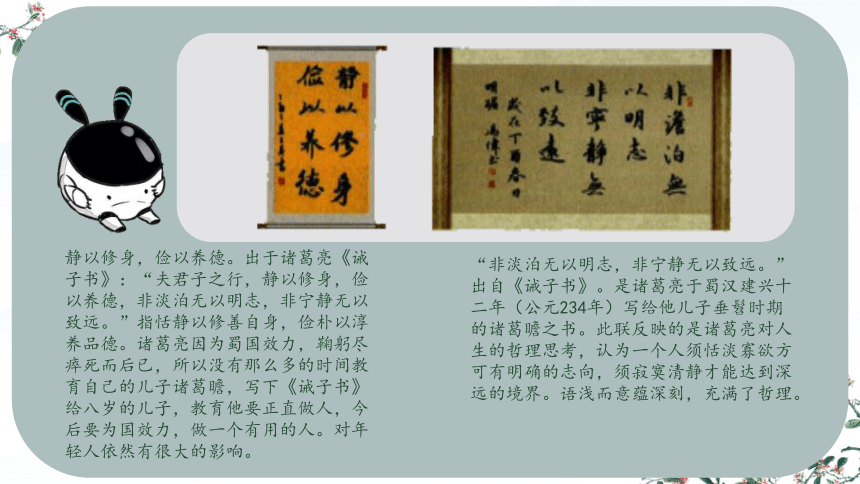 静以修身
俭以养德
非澹泊無
以明志
非寧静無
以致遠
歲在丁酉春日
静以修身，俭以养德。出于诸葛亮《诫
子书》：“夫君子之行，静以修身，俭
以养德，非淡泊无以明志，非宁静无以
致远。”指恬静以修善自身，俭朴以淳
养品德。诸葛亮因为蜀国效力，鞠躬尽
瘁死而后已，所以没有那么多的时间教
育自己的儿子诸葛瞻，写下《诫子书》
给八岁的儿子，教育他要正直做人，今
后要为国效力，做一个有用的人。对年
轻人依然有很大的影响。
“非淡泊无以明志，非宁静无以致远。”
出自《诫子书》。是诸葛亮于蜀汉建兴十
二年（公元234年）写给他儿子垂髫时期
的诸葛瞻之书。此联反映的是诸葛亮对人
生的哲理思考，认为一个人须恬淡寡欲方
可有明确的志向，须寂寞清静才能达到深
远的境界。语浅而意蕴深刻，充满了哲理。